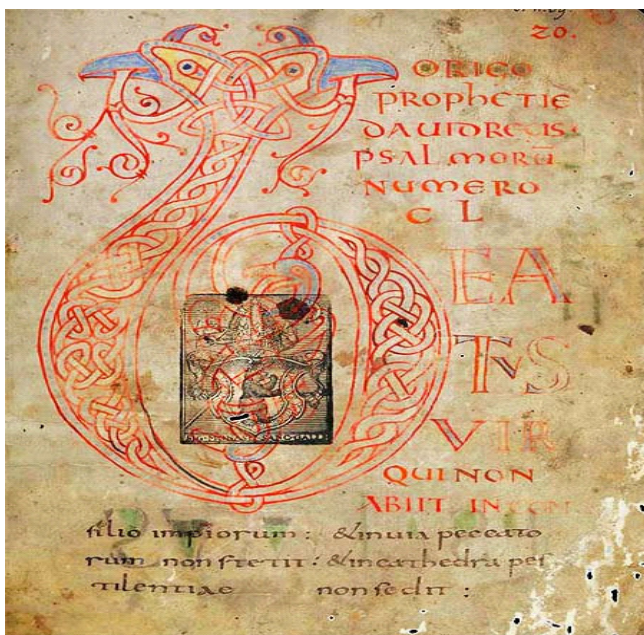 20.
ORIGO
PROPHETIE
DAUID REGIS
PSALMORŪ
NUMERO
C L
BEA
TVS
VIR
QUI NON
ABIIT IN CON
silio impiorum : & in uia peccato
rum non stetit : & in cathedra pes
tilentiae non sedit :